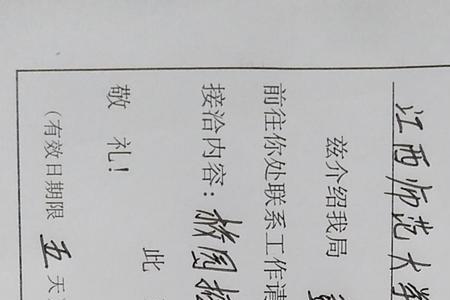 江西师范大学
兹介绍我局
前往你处联系工作请
接洽内容：校园
此
敬 礼!
(有效日期限 五 天